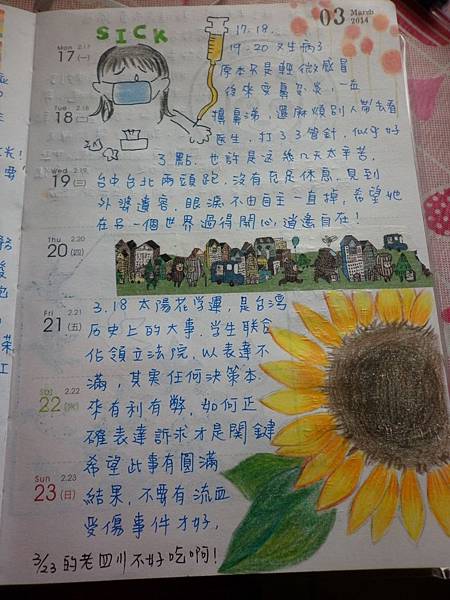 03 March 2014
SICK
17.18.
19.20 又生病了
原本只是輕微感冒
後來變鼻竇炎,一直
擤鼻涕,還麻煩別人帶去看
医生,打了3管針,似乎好
了點.也許是这幾天太辛苦,
台中台北兩頭跑,沒有充足休息,見到
外婆遺容,眼淚不由自主一直掉,希望她
在另一個世界過得開心,逍遙自在!
Mon 2.17
17 (一)
Tue 2.18
18 (二)
Wed 2.19
19 (三)
Thu 2.20
20 (四)
Fri 2.21
21 (五)
Sat 2.22
22 (六)
Sun 2.23
23 (日)
3.18 太陽花学運,是台灣
历史上的大事.学生联合
佔領立法院,以表達不
滿,其実任何決策本
來有利有弊,如何正
確表達訴求才是関鍵
希望此事有圓滿
結果,不要有流血
受傷事件才好,
3/23 的老四川不好吃啊!